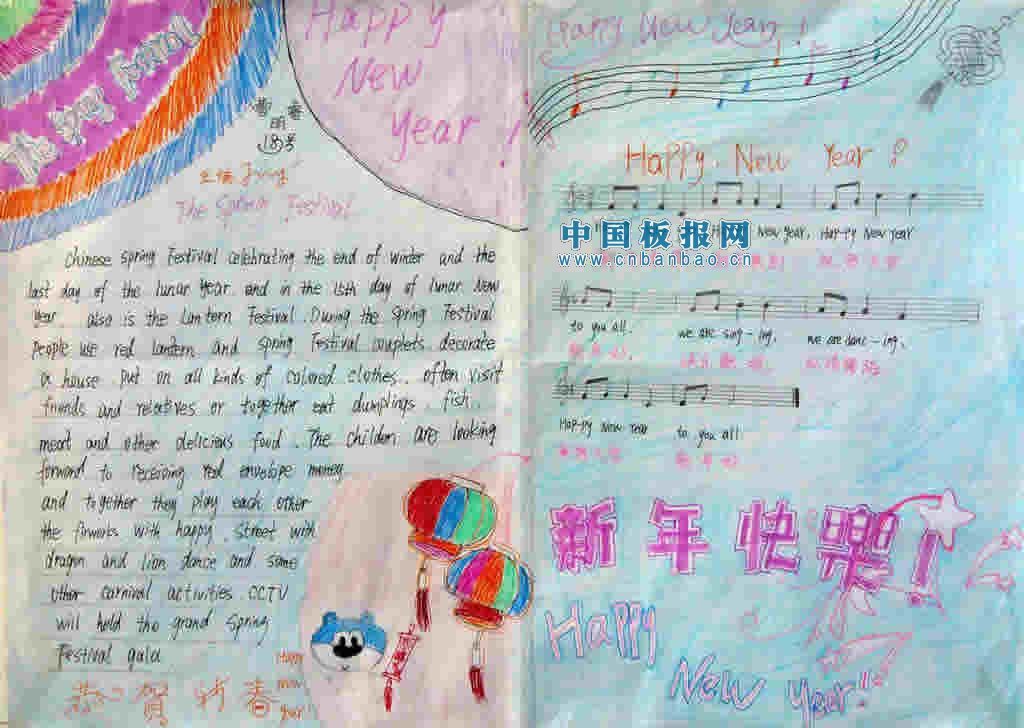 Happy
New
year !
The Spring Festival
Chinese spring Festival celebrating the end of winter and the
last day of the lunar year. and in the 15th day of lunar New
year also is the Lantern Festival. During the spring Festival
people use red lantern and spring Festival couplets. decorate
a house. put on all kinds of colored clothes. often visit
friends and relatives or together eat dumplings. fish.
meat and other delicious food. The childen are looking
forward to receiving red envelope money
and together they play each other
the firworks with happy. street with
dragon and lion dance and some
other carnival activities. CCTV
will hold the grand spring
Festival gala
恭贺新春
Happy
new
year!
Happy New Year !
Happy New Year !
中国板报网
www.cnbanbao.cn
New year, Hap-py New year
to you all. we are sing-ing, we are danc-ing,
Hap-py New Year to you all.
新年快樂!
Happy
New Year!!